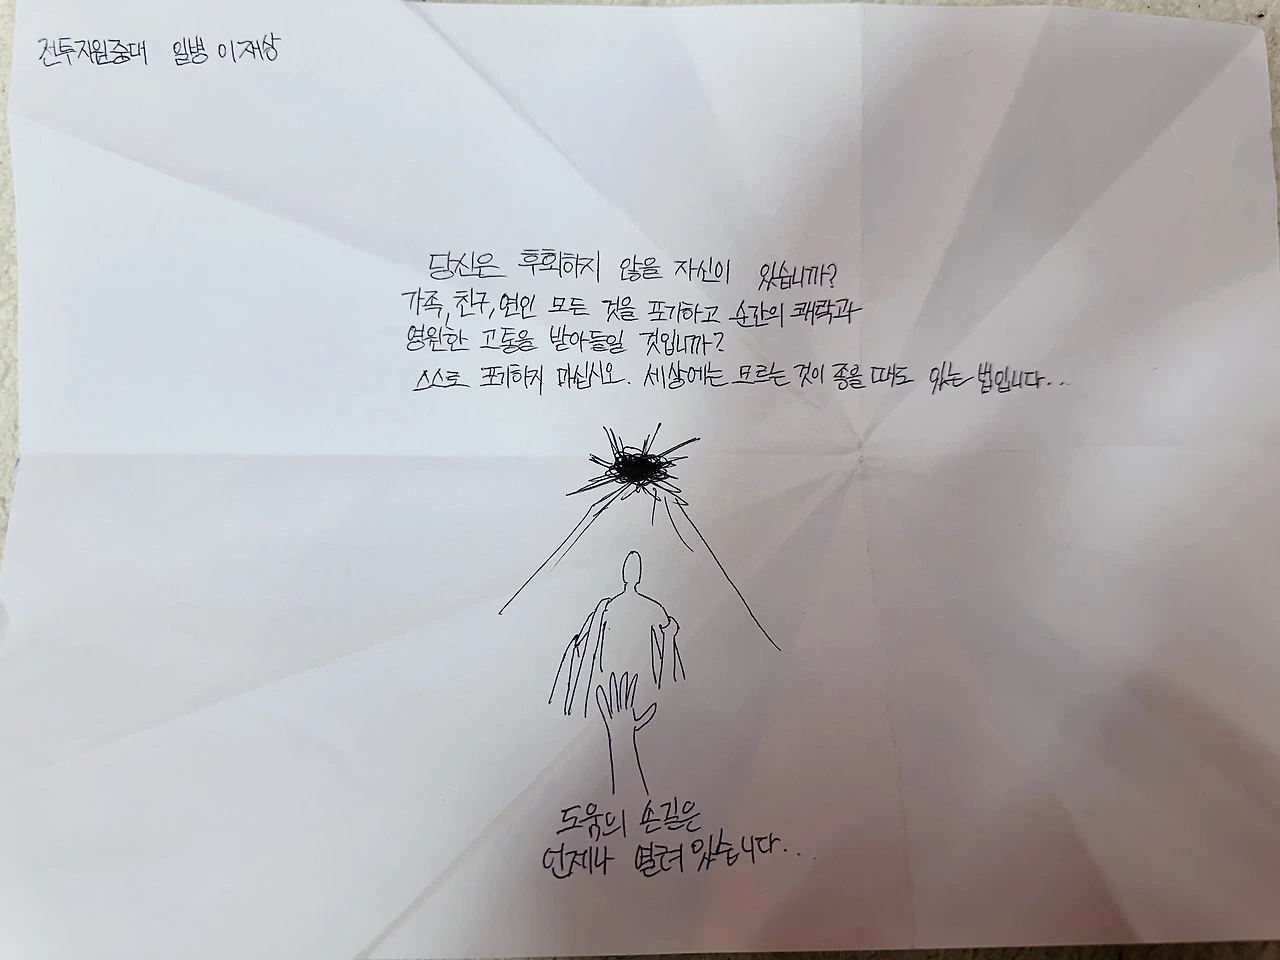 전투지원중대 일병 이재상
당신은 후회하지 않을 자신이 있습니까?
가족, 친구, 연인 모든 것을 포기하고 순간의 쾌락과
영원한 고통을 받아들일 것입니까?
스스로 포기하지 마십시오. 세상에는 모르는 것이 좋을 때도 있는 법입니다...
도움의 손길은
언제나 열려 있습니다...